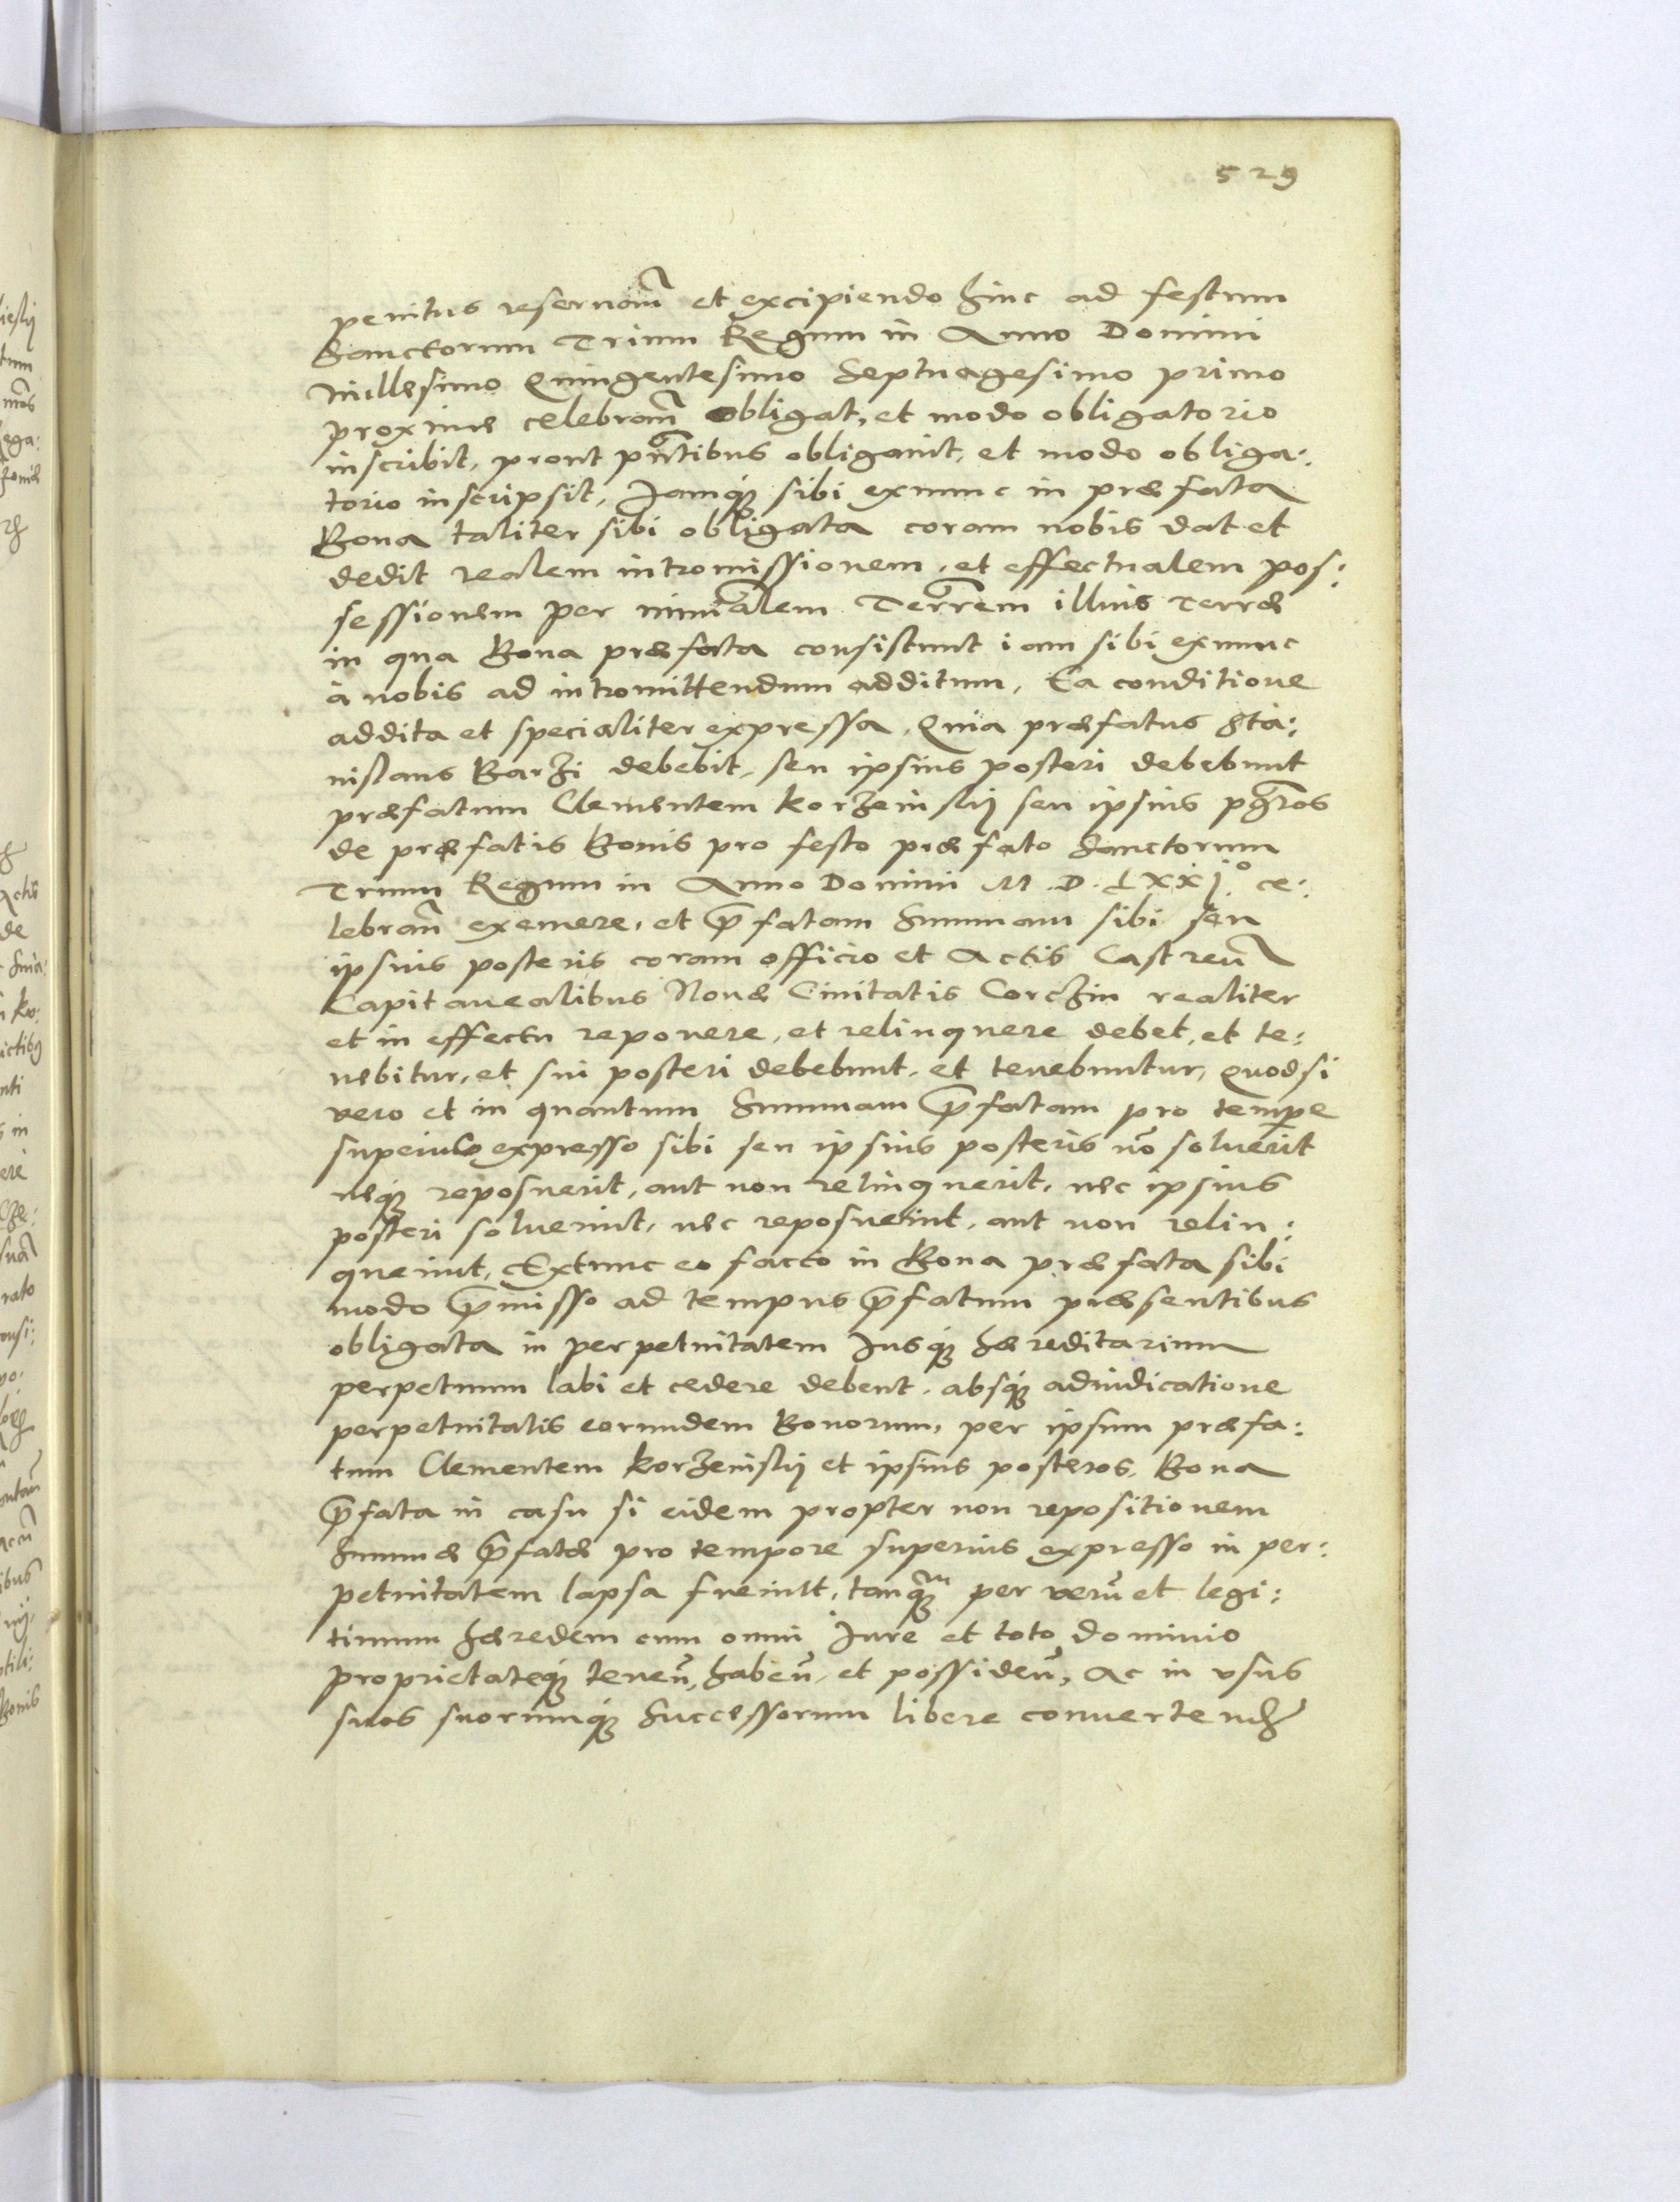 529
penitus reseruan̄ et excipiendo hinc ad festum
Sanctorum Trium Regum in Anno Domini
Millesimo Quingentesimo Septuagesimo primo
proxime celebran̄ obligat, et modo obligatorio
inscribit, prout pn̄tibus obligauit, et modo obliga:
torio inscripsit, Iamq́ꝫ sibi exnunc in præfata
Bona taliter sibi obligata coram nobis dat et
dedit realem intromissionem, et effectualem pos:
sessionem per minr̄alem Terrēm illius terræ
in qua Bona præfata consistunt iam sibi exnunc
à nobis ad intromittendum additum, Ea conditione
addita et specialiter expressa, Quia præfatus Sta:
nislaus Barzi debebit, seu ipsius posteri debebunt
præfatum Clementem Korzeinskij seu ipsius pr̄os
de præfatis Bonis pro festo præfato Sanctorum
Trium Regum in Anno Domini M.D.LXXj.º ce:
lebran̄ exemere, et p̄fatam Summam sibi seu
ipsius posteris coram officio et Actis Castren̄
Capitanealibus Nouæ Ciuitatis Corczin realiter
et in effectu reponere, et relinquere debet, et te:
nebitur, et sui posteri debebunt, et tenebuntur, Quodsi
vero et in quantum Summam p̄fatam pro tempe
superius expresso sibi seu ipsius posteris nō soluerit
neq́ꝫ reposuerit, aut non relinquerit, nec ipsius
posteri soluerint, nec reposuerint, aut non relin:
querint, Extunc eo facto in Bona præfata sibi
modo p̄misso ad tempus p̄fatum præsentibus
obligata in perpetuitatem Iusq́ꝫ hæreditarium
perpetuum labi et cedere debent, absq́ꝫ adiudicatione
perpetuitatis eorundem Bonorum, per ipsum præfa:
tum Clementem Korzeinskij et ipsius posteros, Bona
p̄fata in casu si eidem propter non repositionem
Summæ p̄fatæ pro tempore superius expresso in per:
petuitatem lapsa fuerint, tanq́ꝫm per verū et legi:
timum hæredem cum omni Iure et toto dominio
proprietateq́ꝫ tenen̄, haben̄, et possiden̄, Ac in vsus
suos suorumq́ꝫ Successorum libere conuertend